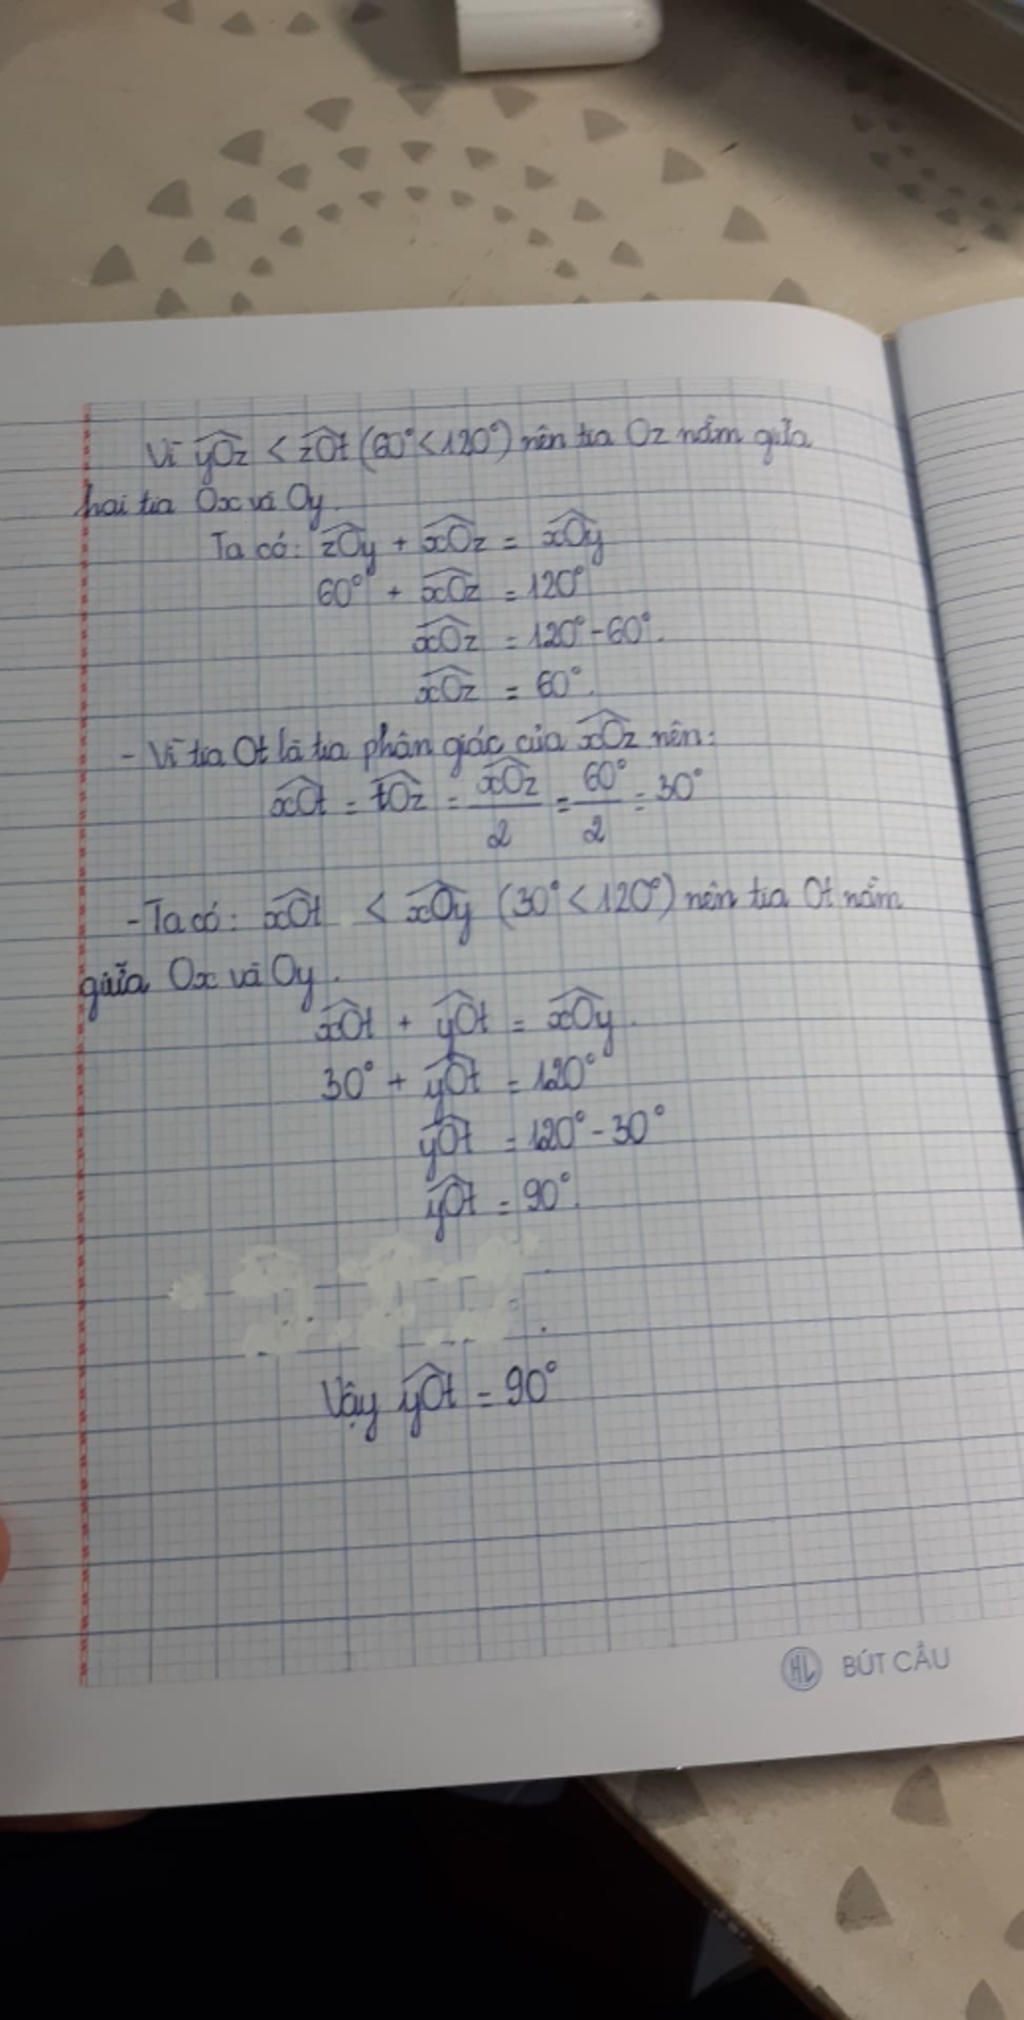 Vì yOz < zOt (60° < 120°) nên tia Oz nằm giữa
hai tia Ox và Oy.
Ta có: zOy + xOz = xOy
60° + xOz = 120°
xOz = 120° - 60°.
xOz = 60°.
- Vì tia Ot là tia phân giác của xOz nên:
xOt = tOz = xOz/2 = 60°/2 = 30°
- Ta có: xOt < xOy (30° < 120°) nên tia Ot nằm
giữa Ox và Oy.
xOt + yOt = xOy.
30° + yOt = 120°
yOt = 120° - 30°
yOt = 90°.
Vậy yOt = 90°
HL BÚT CÂU